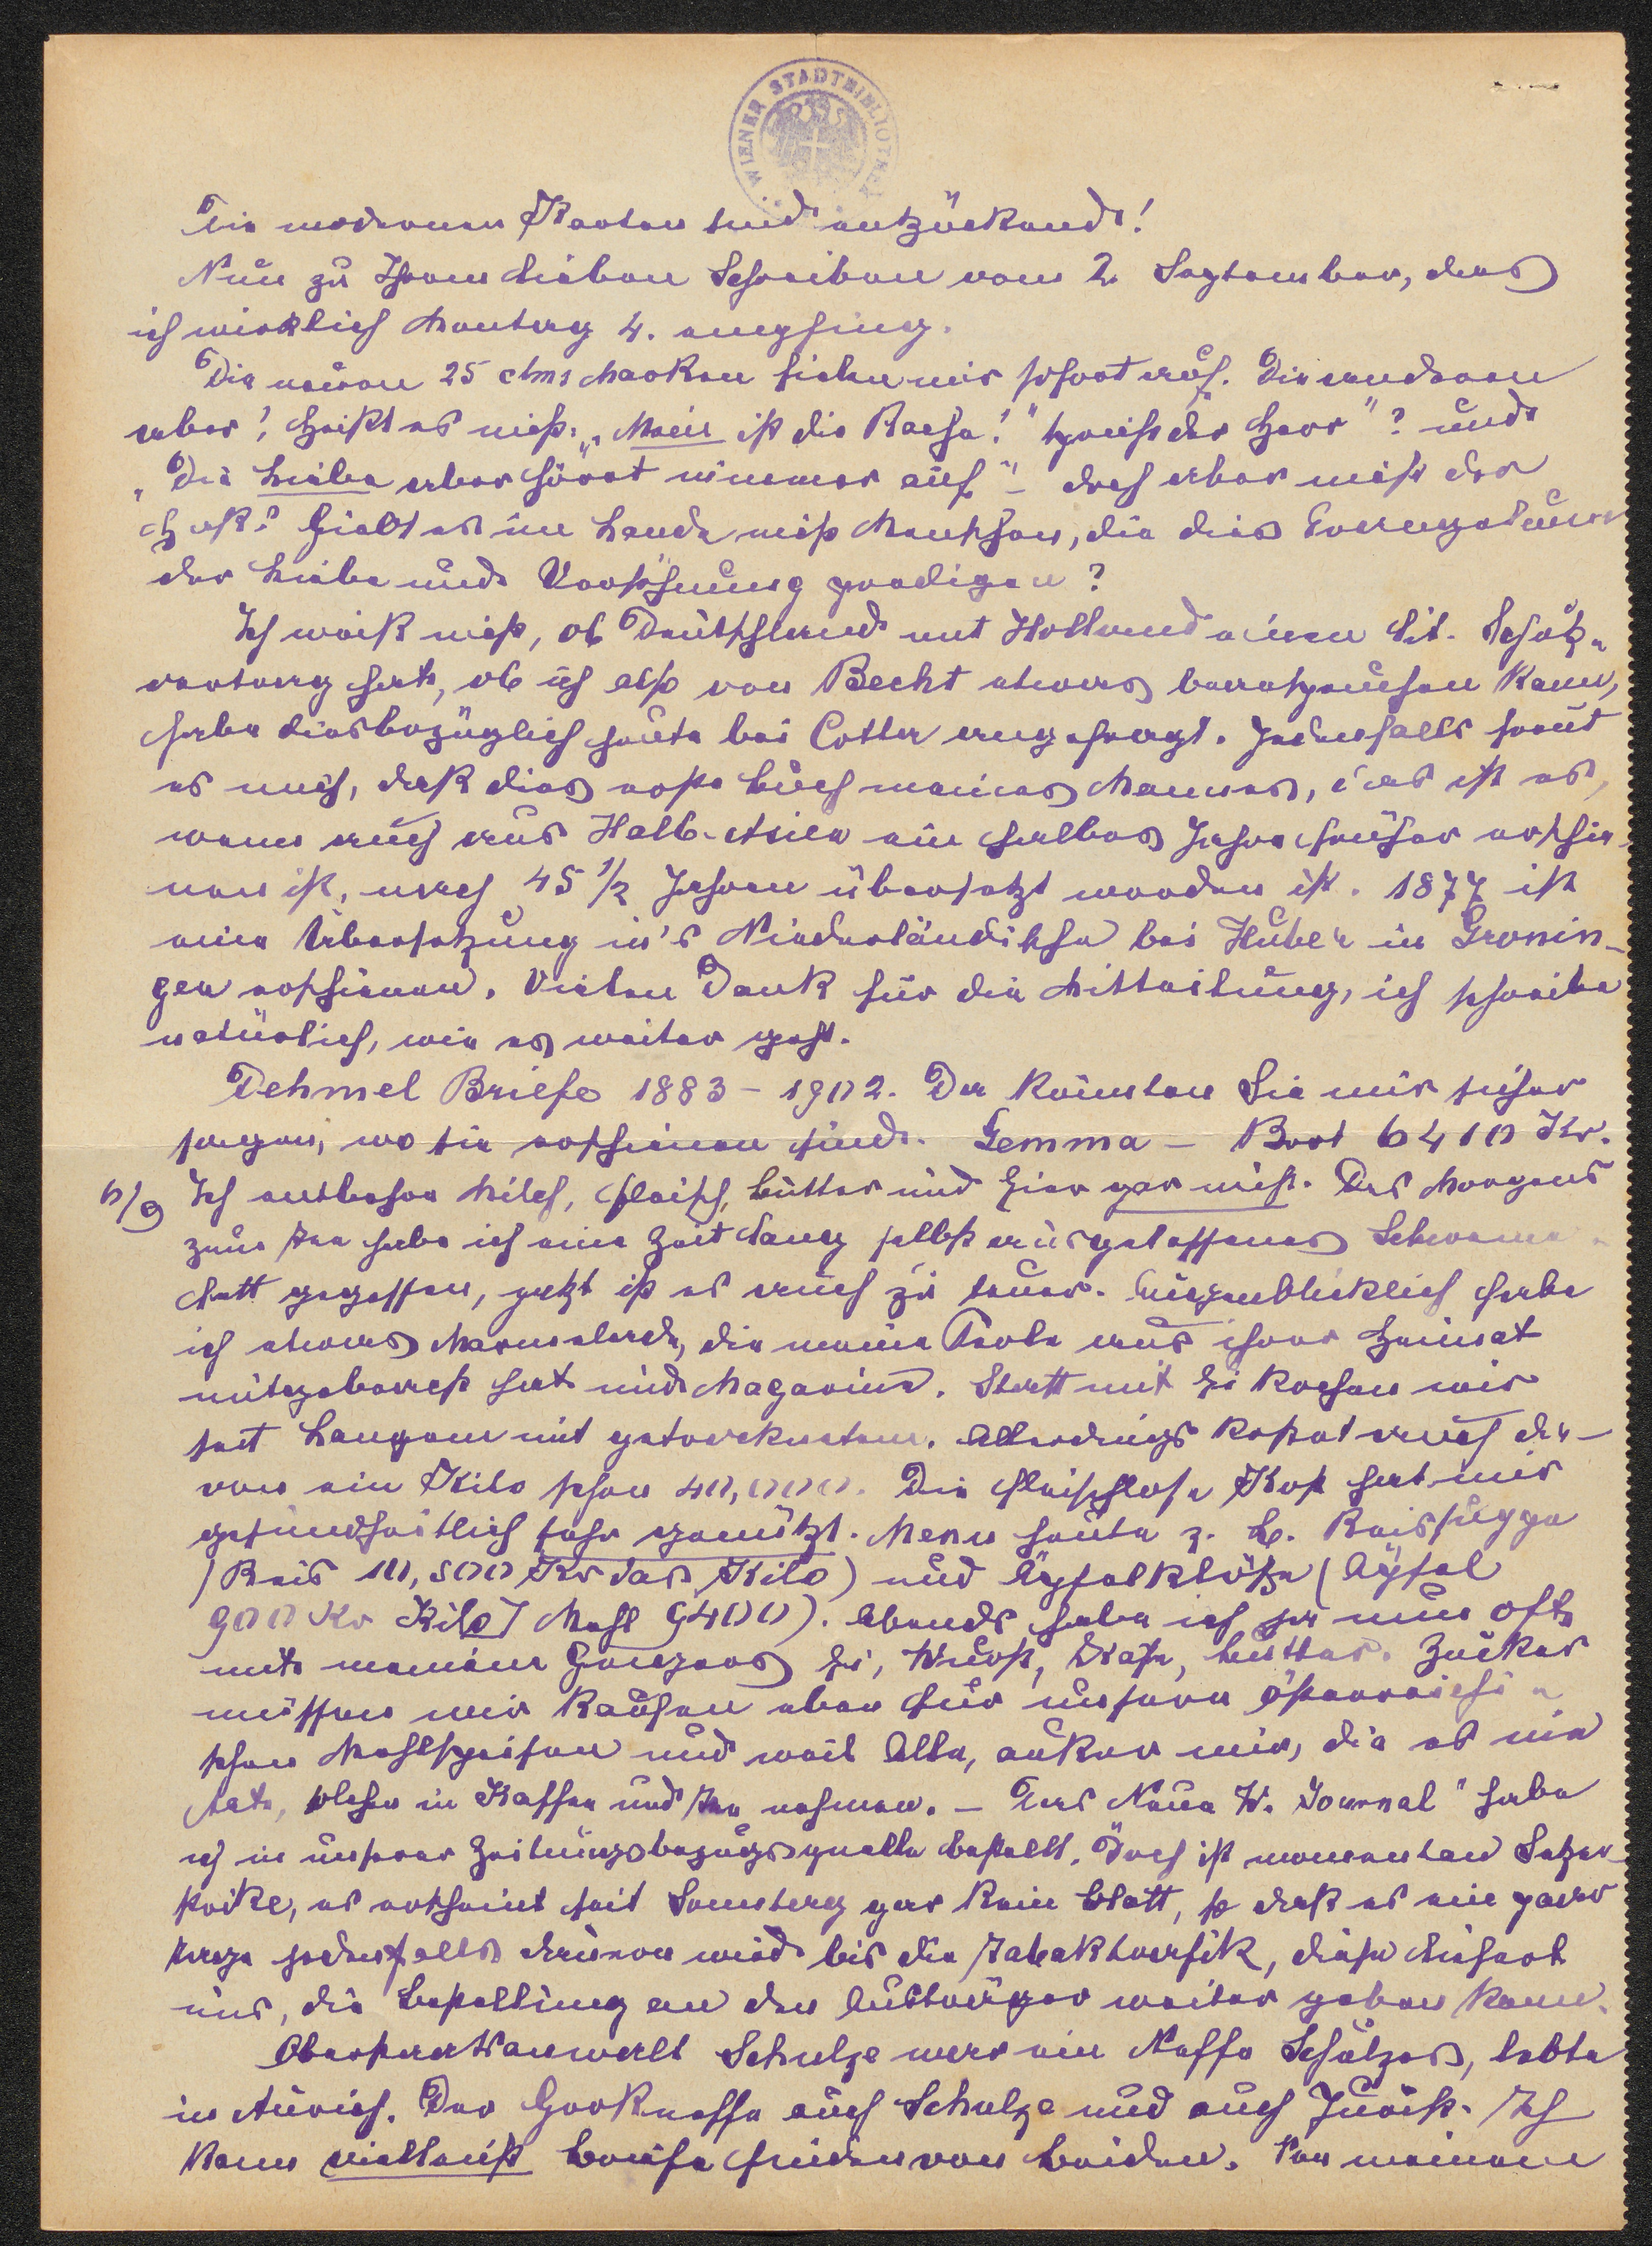 WIENER STADTBIBLIOTHEK
Die modernen Karten sind entzückend!
Nun zu Ihrem lieben Schreiben vom 2. September, das
ich wirklich Montag 4. empfing.
Die neuen 25 Mks Marken fielen mir sofort auf. Die anderen
aber! Heißt es nicht „Mein ist die Rache!" spricht der Herr"? und
„Die Liebe aber höret nimmer auf" – doch aber nicht der
Haß? Giebt es im Lande nicht Menschen, die dies Evangelium
der Liebe und Versöhnung predigen?
Ich weiß nicht, ob Deutschland mit Holland einen Lit. Schutz-
vertrag hat, ob ich also von Becht etwas beanspruchen kann,
habe diesbezüglich heute bei Cotta angefragt. Jedenfalls freut
es mich, daß dies erste Buch meines Mannes, das ist es,
wenn auch aus Halb-Asien ein halbes Jahr früher erschie-
nen ist, nach 45 1/2 Jahren übersetzt worden ist. 1877 ist
eine Übersetzung in's Niederländische bei Huber in Gronin-
gen erschienen. Vielen Dank für die Mitteilung, ich schreibe
natürlich, wie es weiter geht.
Dehmel Briefe 1883 – 1902. Da könnten Sie mir sicher
sagen, wo sie erschienen sind. Gemma – Brot 6410 Kr.
6/9 Ich entbehre Milch, Fleisch, Butter und Eier gar nicht. Des Morgens
zum Tee habe ich eine Zeit lang selbst ausgelassenes Schweine-
fett gegessen, jetzt ist es auch zu teuer. Augenblicklich habe
ich etwas Marmelade, die meine Perle aus ihrer Heimat
mitgebracht hat und Magarine. Statt mit Ei kochen wir
seit Langem mit getrocknetem. Allerdings kostet auch da-
von ein Kilo schon 40,000. Die fleischlose Kost hat mir
gesundheitlich sehr genützt. Menu heute z. B. Reissuppe
(Reis 10,500 Kr das Kilo) und Äpfelklöße (Äpfel
900 Kr Kilo, Mehl 9400). Abends habe ich ja nun oft
mit meinem Ei, Wurst, Käse, Butter. Zucker
müssen wir kaufen eben für unsere österreichi-
schen Mehlspeisen und weil Alle, außer mir, die es nie
tat, solchen in Kaffee und Tee nehmen. – Das Neue W. Journal" habe
ich in unserer Zeitungsbezugsquelle bestellt. Doch ist momentan Setzer-
streike, es erscheint seit Samstag gar kein Blatt, so daß es ein paar
Tage jedenfalls dauern wird bis die Tabaktrafik, diese liefert
uns, die Bestellung an den Austräger weiter geben kann.
Oberstaatsanwalt Schulze war ein Neffe Schulzes, lebte
in Aurich. Der Großneffe auch Schulze und auch Jurist. Ich
kann vielleicht Briefe finden von beiden. Von meinem